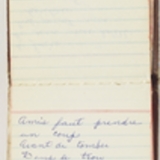 faut prendre
un coup
Avant de tomber
Dans le trou